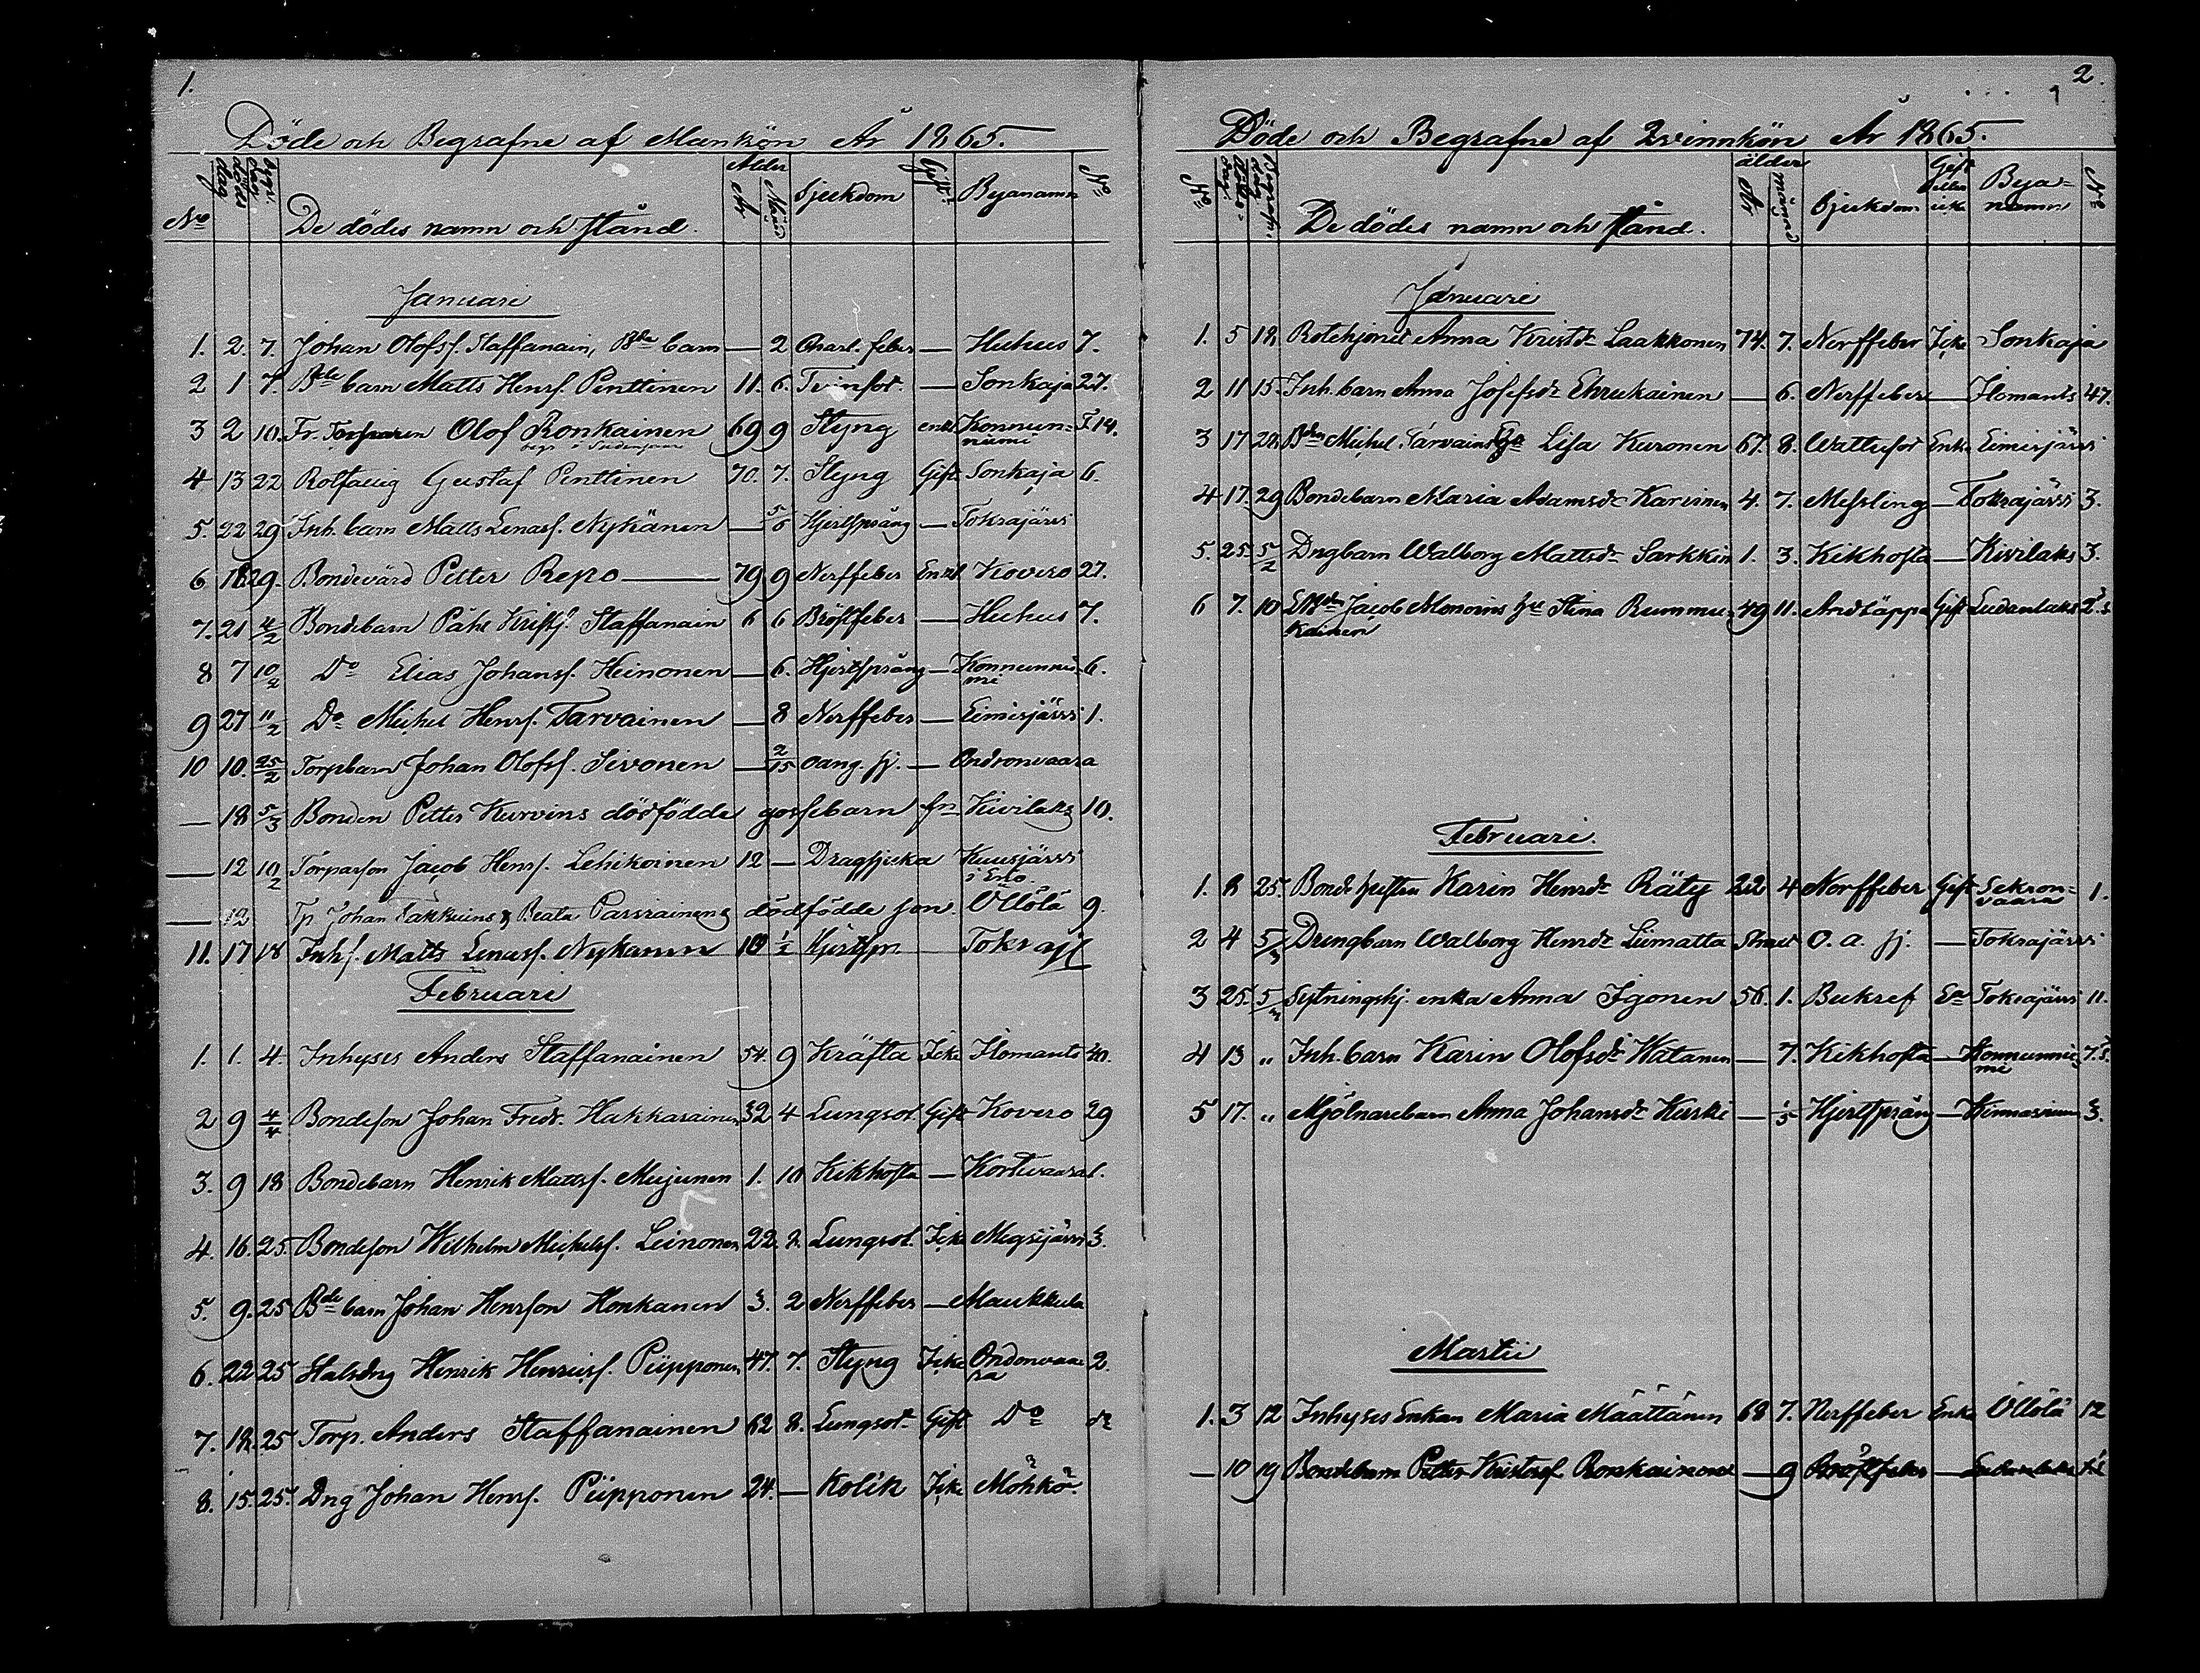 1.
Döde och Begrafne af Mankön År 1865.
No dag Begr. dag De dödes namn och stånd. Ålder år Månad Sjukdom Gift Byanamn No
Januari
1. 2. 7. Johan Olofss. Staffanain, Bde barn — 2 Skarl. feber — Huhus 7.
2 1 7. Bde barn Matts Henrs. Penttinen 11. 6. Tvinsot. — Sonkaja 27.
3 2 10. Fr. Torparen Olof Ronkainen 69 9 Styng enkl Konnun= F 14.
niemi
4 13 22 Rotfattig Gustaf Penttinen 70. 7. Styng Gift Sonkaja 6.
5. 22 29 Inh. barn Matts Lenasf. Nykänen — 5/6 Hjertsprång — Tokrajärvi
6 18 29. Bondevärd Petter Repo — 79 9 Nerffeber Enkl Kovero 27.
7. 21 4/2 Bondebarn Påhl Kristf. Staffanain 6 6 Bröstfeber — Huhus 7.
8 7 10/2 Do Elias Johansf. Heinonen — 6. Hjertsprång — Konnunnie 6.
mi
9 27 11/2 Do Michel Henrs. Tarvainen — 8 Nerffeber — Eimisjärvi 1.
10 10. 25/2 Torpbarn Johan Olofsf. Sivonen — 2/15 oang. sj. — Ondronvaara
— 18 5/3 Bonden Petter Kurvins dödfödde gossebarn fn Kivilaks 10.
— 12 10/2 Torparson Jacob Henrs. Lehikoinen 12 — Dragsjuka Kuusjärvi
i Eno
— 12 Tp Johan Takkuins & Beata Parviainens dödfödde son. Öllölä 9.
11. 17 18 Inhs. Matts Lenasf. Nykänen 10 1/2 Hjertspr. Tokraj
Februari
1. 1. 4. Inhyses Anders Staffanainen 54. 9 Kräfta Icke Ilomants 40.
2 9 4/4 Bondeson Johan Fredr. Hakkarainen 32 4 Lungsot. Gift Kovero 29
3. 9 18 Bondebarn Henrik Mattsf. Meijunen 1. 10 Kikhosta — Kortevaara 1.
4. 16. 25. Bondeson Wilhelm Michelsf. Leinonen 22. 2. Lungsot. Icke Megrijärvi 3.
5. 9. 25 Bde barn Johan Henrson Honkanen 3. 2 Nerffeber — Maukkula
6. 22 25 Halsdrg Henrik Henricsf. Piipponen 47. 7. Styng Icke Ondonvaa 2.
ra
7. 18. 25 Torp. Anders Staffanainen 62 8. Lungsot. Gift Do do
8. 15. 25. Dng Johan Henrs. Piipponen 24. — Kolik Icke Möhkö
2.
Döde och Begrafne af Qvinnkön År 1865.
No De dödes namn och stånd. ålder År månad Sjukdom Gift eller icke Bya= namn No
Januari
1. 5 18 Rotehjonet Anna Kristdr Laakkonen 74. 7. Nerffeber Icke Sonkaja
2 11 15. Inh. barn Anna Josefsdr Ehrukainen — 6. Nerffeber — Ilomants 47.
3 17 28 Bden Michel Tarvains Lisa Kuronen 67. 8. Wattusot Enka Eimisjärvi
4 17. 29 Bondebarn Maria Adamsdr Karvinen 4. 7. Messling — Tokrajärvi 3.
5. 25. 5/2 Dngbarn Walborg Mattsdr Sarkkin 1. 3. Kikhosta — Kivilaks 3.
6 7. 10 Jacob Mononins hu Stina Rummu 49 11. Andtäppa Gift Ludanlaks 2.
kainen
Februari.
1. 8 25. Bondehustrun Karin Henrsdr Räty 22 4 Nerffeber Gift Sekron= 1.
vaara
2 4 5/3 Drengbarn Walborg Henrdr Liimatta O. a. sj. — Tokrajärvi
3 25. 5/3 Sytningshj. enka Anna Igonen 56. 1. Bukref Ea Tokrajärvi 11.
4 13 " Inh. barn Karin Olofsdr Watanen — 7. Kikhosta — Konnunnie 7.
mi
5 17. " Mjölnarebarn Anna Johansdr Kurki — 1/5 Hjertsprång — 3.
Martii
1. 3 12 Inhyses Enkan Maria Määttänen 68 7. Nerffeber Enka Öllölä 12
— 10 19 Bondebarn Petter Kristersf Ronkainen — 9 Bröstfeber —